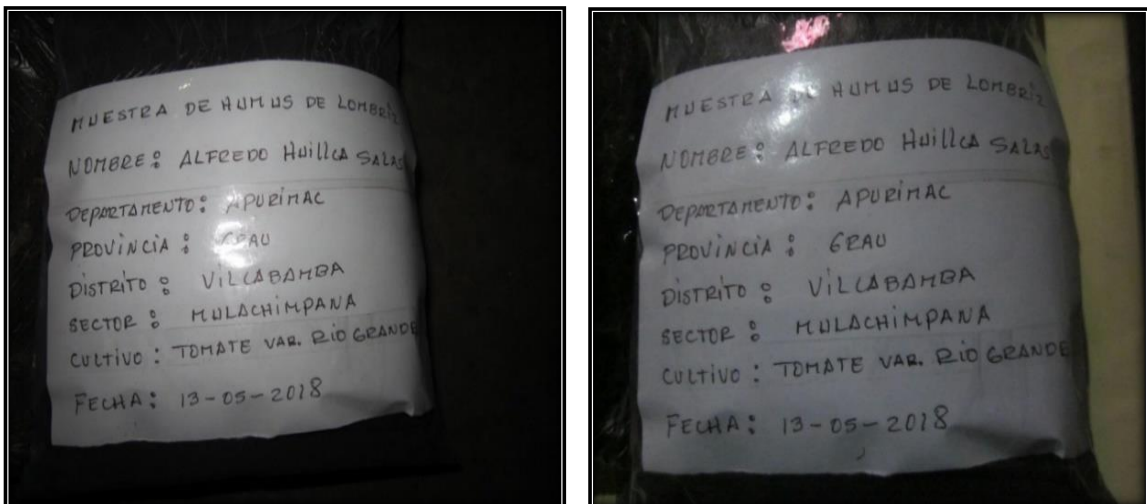 MUESTRA DE HUMUS DE LOMBRIZ
NOMBRE: ALFREDO HUILLCA SALAS
DEPARTAMENTO: APURIMAC
PROVINCIA: GRAU
DISTRITO: VILCABAMBA
SECTOR: MULACHIMPANA
CULTIVO: TOMATE VAR. RIO GRANDE
FECHA: 13-05-2018
MUESTRA DE HUMUS DE LOMBRIZ
NOMBRE: ALFREDO HUILLCA SALAS
DEPARTAMENTO: APURIMAC
PROVINCIA: GRAU
DISTRITO: VILCABAMBA
SECTOR: MULACHIMPANA
CULTIVO: TOMATE VAR. RIO GRANDE
FECHA: 13-05-2018